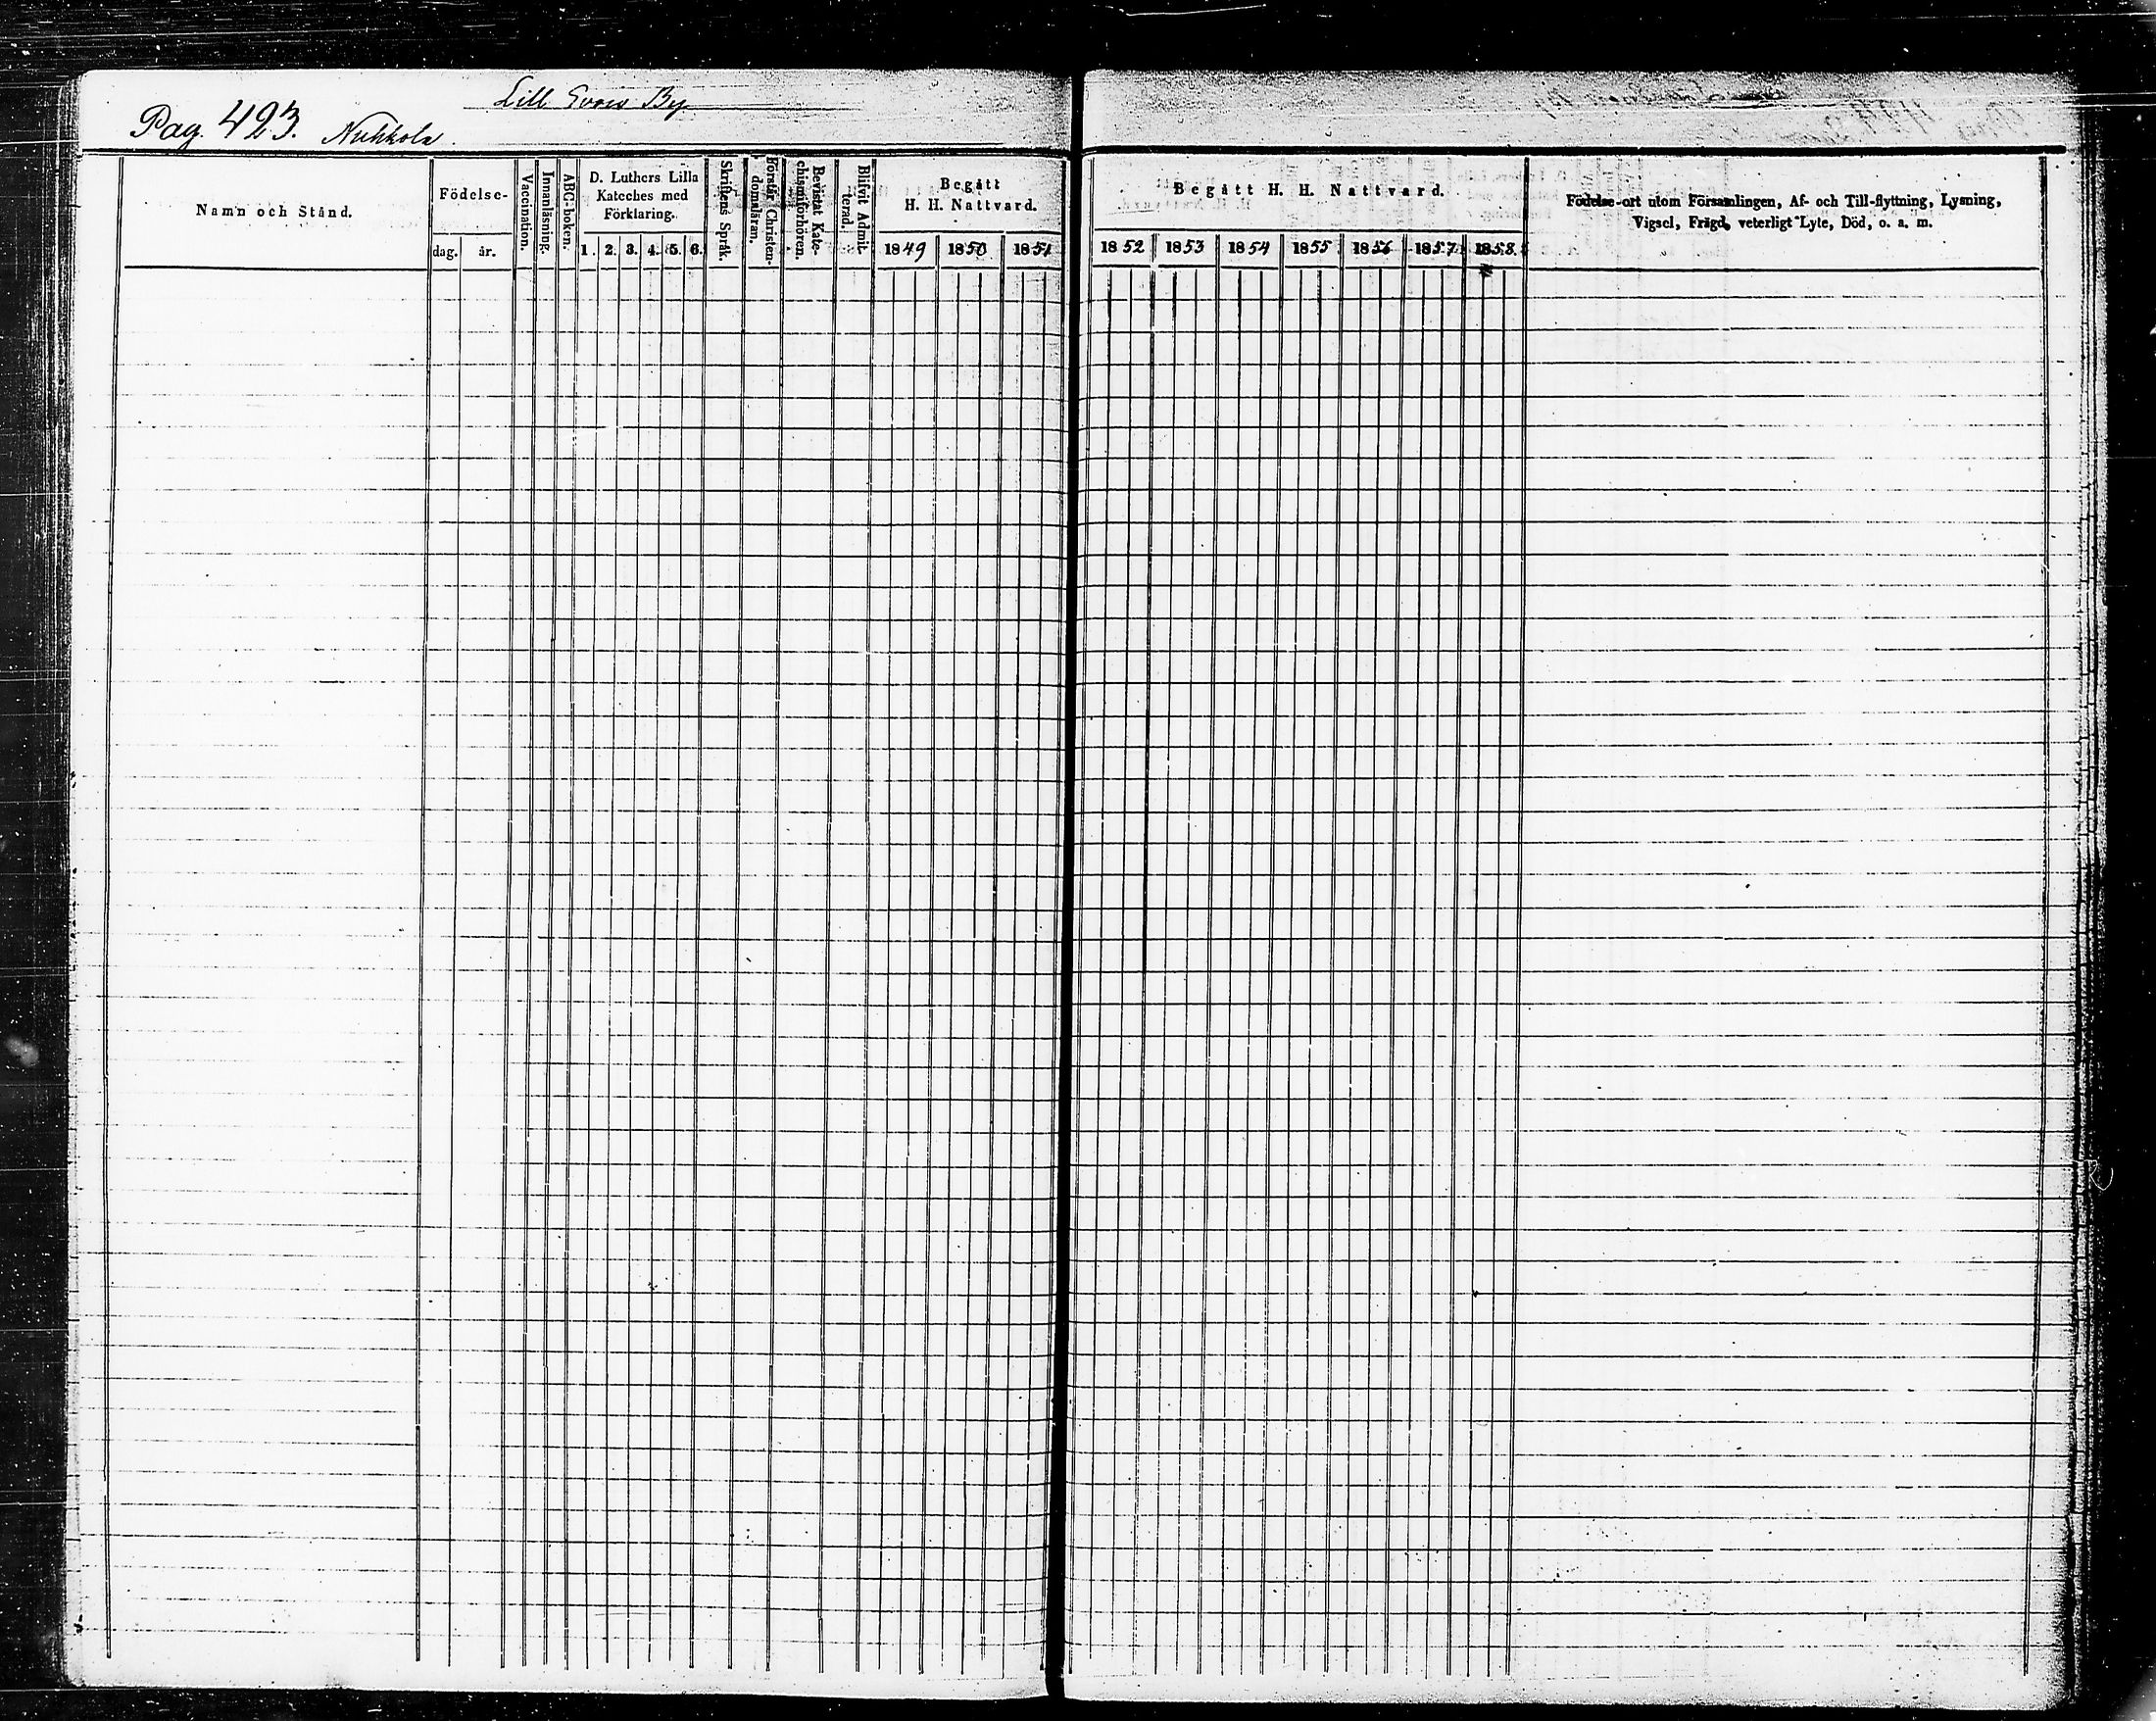 Lill Evois By
Pag. 423. Nuhkola.
Namn och Stånd.
Födelse-
dag. år.
Vaccination.
Innanläsning.
ABC-boken.
D. Luthers Lilla
Kateches med
Förklaring.
1. 2. 3. 4. 5. 6.
Skriftens Språk.
Förstår Christen-
domsläran.
Bevistat Kate-
chismiförhören.
Blifvit Admit-
terad.
Begått
H. H. Nattvard.
1849 1850 1851
Begått H. H. Nattvard.
1852 1853 1854 1855 1856 1857 1858.
Födelse-ort utom Församlingen, Af- och Till-flyttning, Lysning,
Vigsel, Frägd, veterligt Lyte, Död, o. a. m.